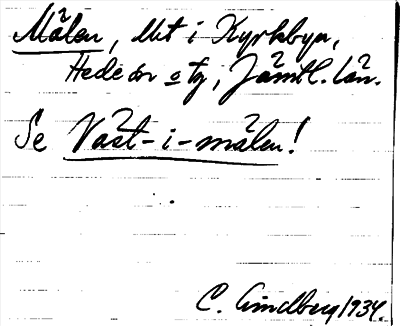 Målen, but i Kyrkbyn,
Hede sn o tg, Jämtl. län.
Se Väst-i-målen!
C. Lindberg 1934.